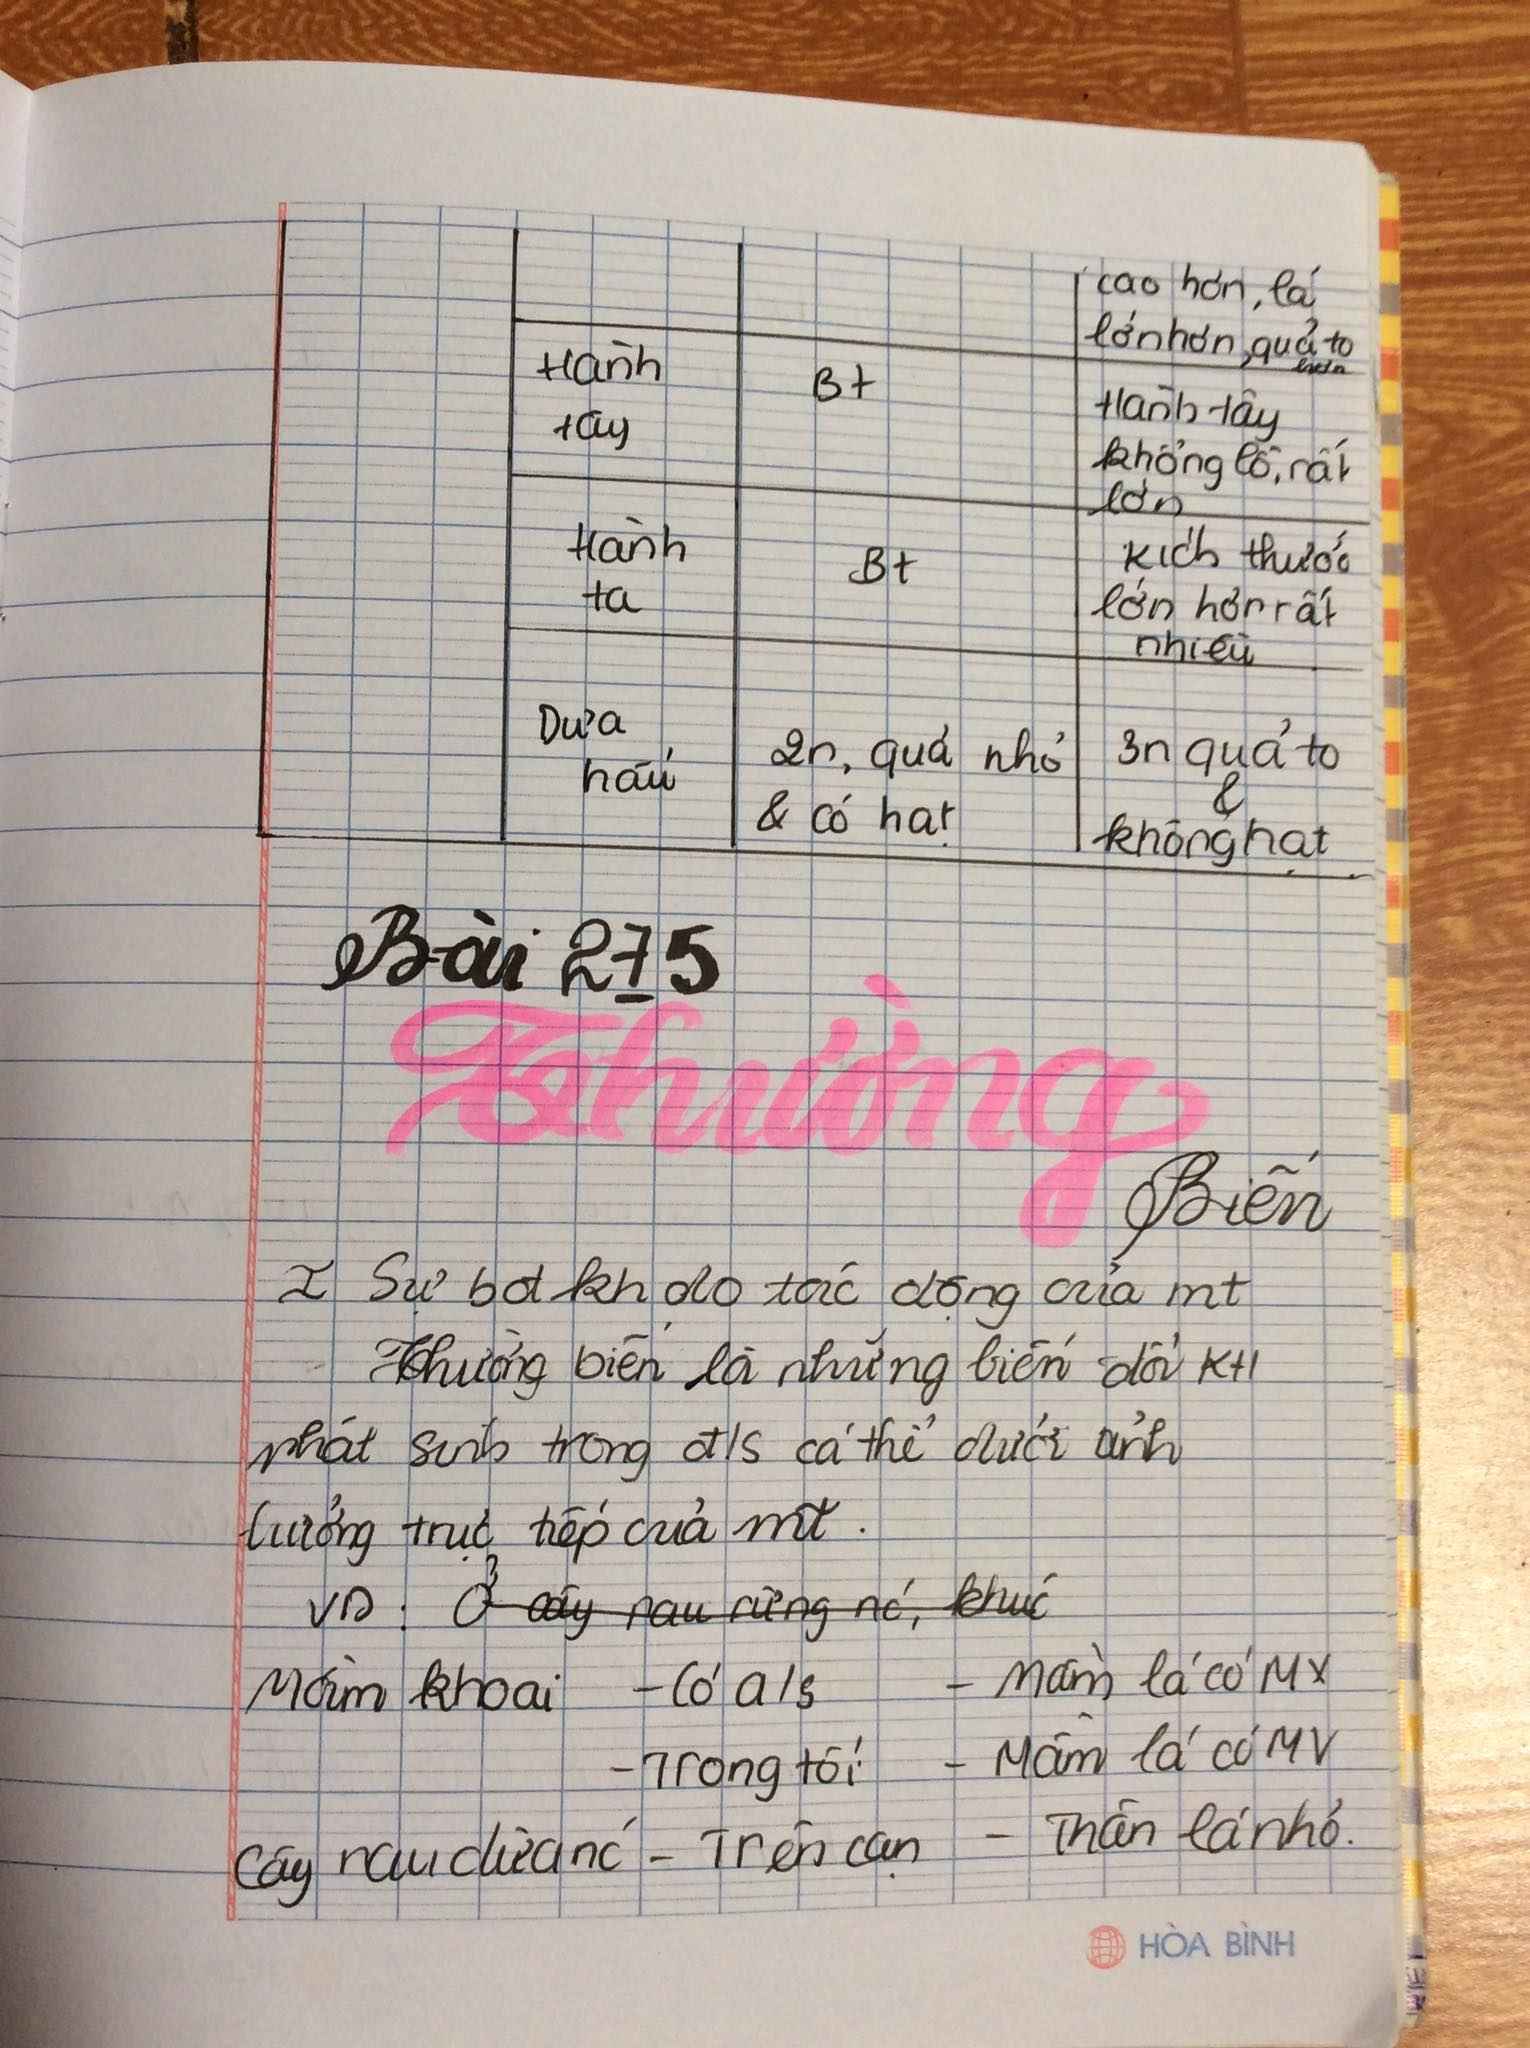 cao hơn, lá
lớn hơn, quả to
hơn
Hành
tây
Bt
Hành tây
khổng lồ, rất
lớn
Hành
ta
Bt
Kích thước
lớn hơn rất
nhiều
Dưa
hấu
2n, quả nhỏ
& có hạt
3n quả to
&
không hạt
Bài 275
Thường
Biến
I Sự bđ kh do tác động của mt
Thường biến là những biến đổi KH
phát sinh trong đ/s cá thể dưới ảnh
hưởng trực tiếp của mt.
VD: Ở cây rau rừng nc, khúc
Mầm khoai - Có a/s - Mầm lá có MX
- Trong tối - Mầm lá có MV
Cây rau dừa nc - Trên cạn - Thân lá nhỏ.
HÒA BÌNH